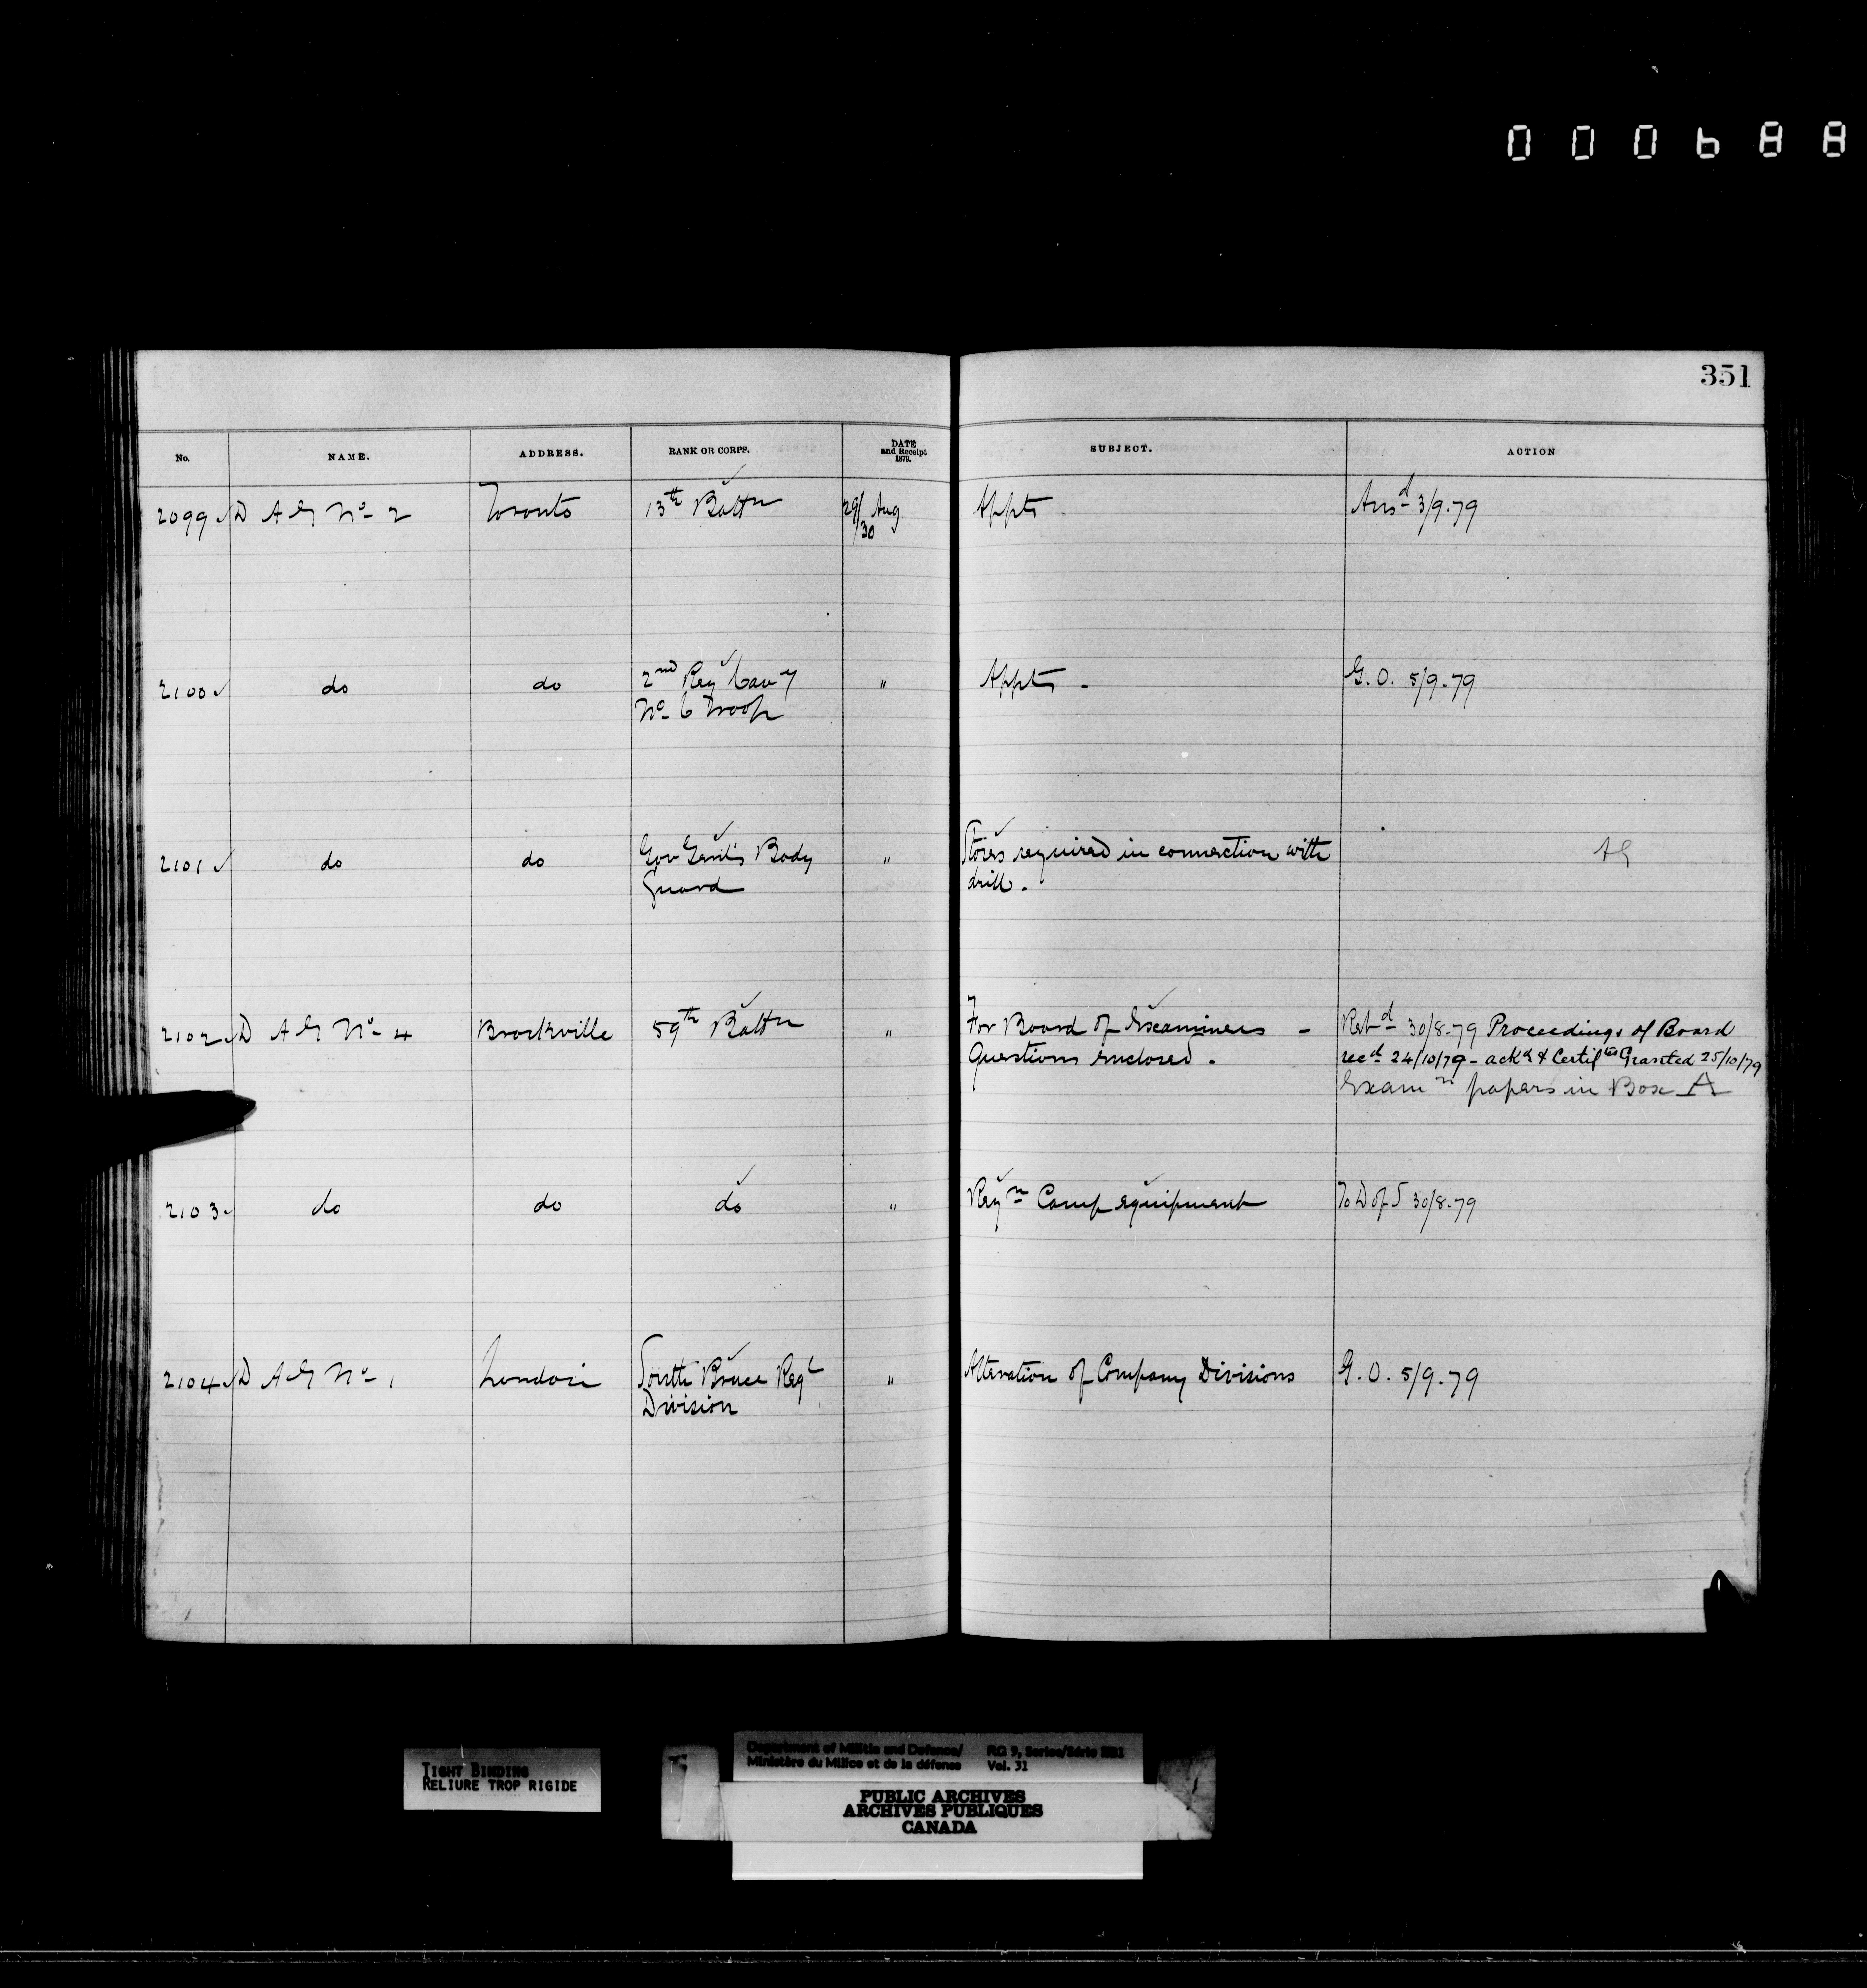 000688
351
No. NAME. ADDRESS. RANK OR CORPS. DATE and Receipt 1879. SUBJECT. ACTION
2099 D A G No 2 Toronto 13th Battn 29/30 Aug Appts. Ansd 3/9.79
2100 do do 2nd Reg Cavy " Appts. G.O. 5/9.79
No 6 Troop
2101 do do Gov Genl's Body " Stores required in connection with AG
Guard drill.
2102 D A G No 4 Brockville 59th Battn " For Board of Examiners - Retd 30/8.79 Proceedings of Board
Questions enclosed. recd 24/10/79 - ackd & Certiftes Granted 25/10/79
Examn papers in Box A
2103 do do do " Reqn Camp equipment To D of S 30/8.79
2104 D A G No 1 London South Bruce Regt " Alteration of Company Divisions G.O. 5/9.79
Division
TIGHT BINDING
RELIURE TROP RIGIDE
Department of Militia and Defence/ RG 9, Series/Série
Ministère du Milice et de la défense Vol. 31
PUBLIC ARCHIVES
ARCHIVES PUBLIQUES
CANADA